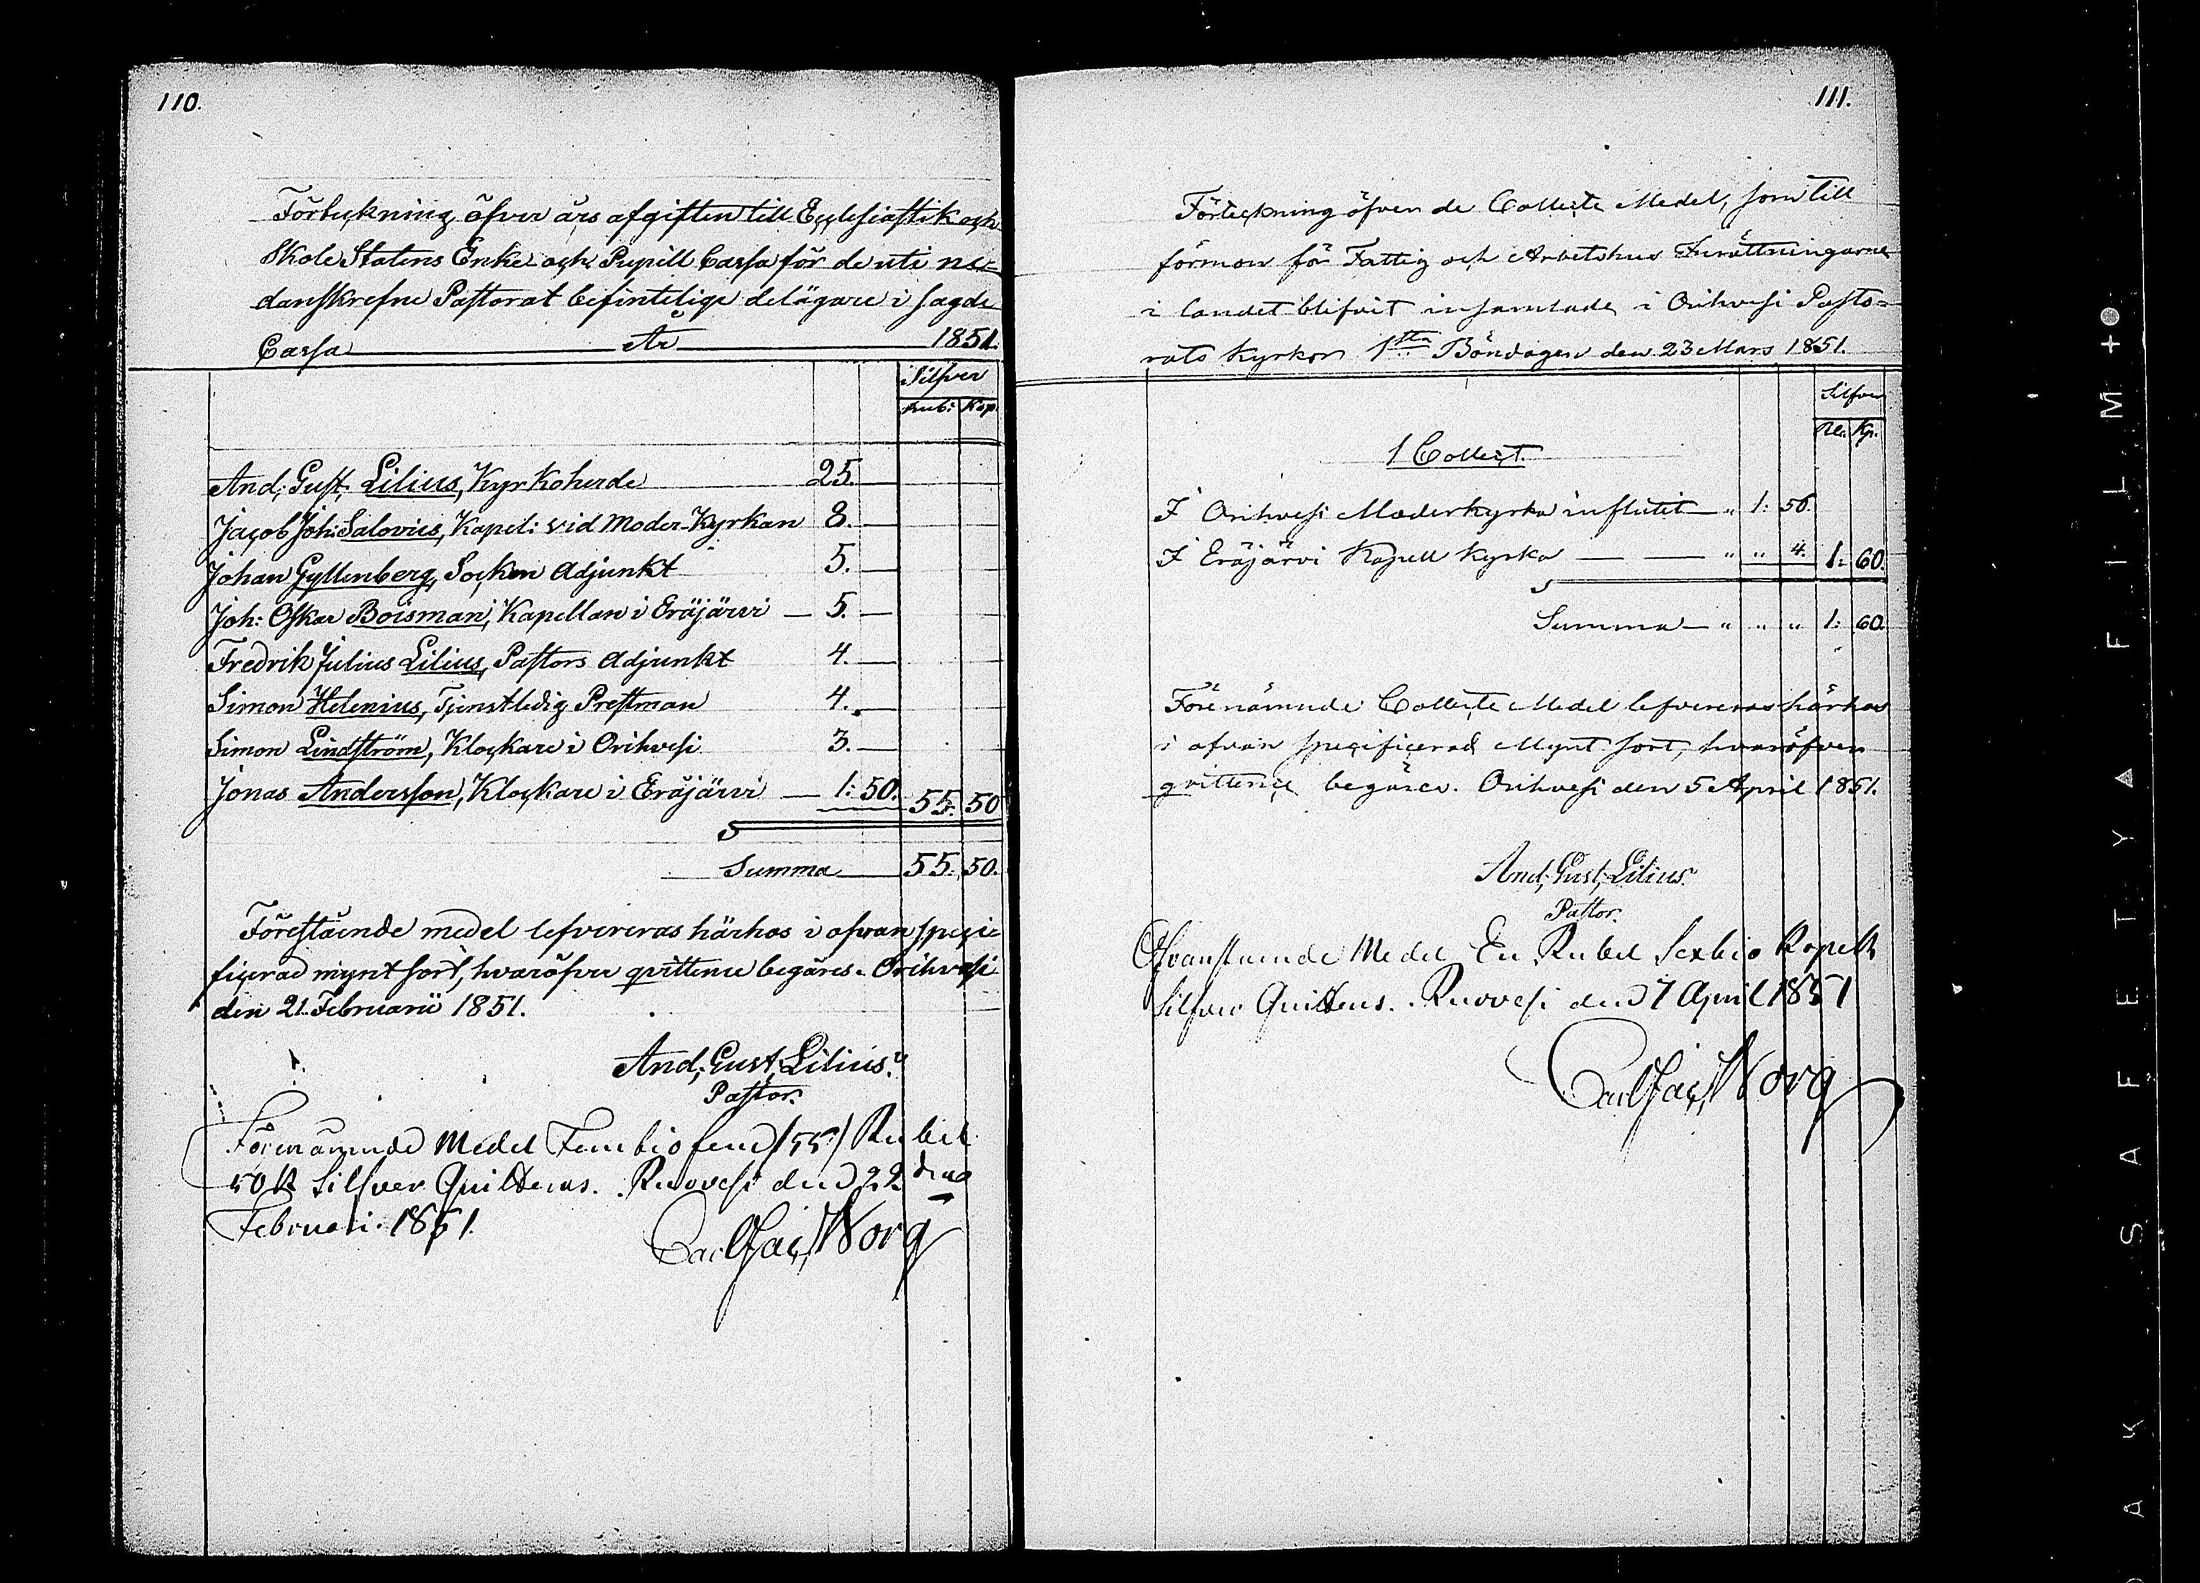 110.
Förteckning öfver års afgiften till Ecclesiastik och
Skole Statens Enke och Pupill Cassa för de uti ne-
danskrefne Pastorat befintelige delägare i sagde
Cassa År 1851.
Silfver
Rub: Kop.
And. Gust. Lilius, Kyrkoherde 25.
Jacob Joh: Salovius, Kapel: vid Moder-Kyrkan 8.
Johan Gyllenberg, Socken Adjunkt 5.
Joh: Oskar Boisman, Kapellan i Eräjärvi 5.
Fredrik Julius Lilius, Pastors Adjunkt 4.
Simon Helenius, Tjenstledig Prestman 4.
Simon Lindström, Klockare i Orihvesi 3.
Jonas Andersson, Klockare i Eräjärvi 1: 50. 55. 50
Summa 55. 50.
Förestående medel lefvereras härhos i ofvan speci-
ficerad mynt sort, hvaröfver qvittence begäres. Orihvesi
den 21. Februarii 1851.
And. Gust. Lilius.
Pastor.
Förenämnde Medel Femtiofem /55/ Rubel
50 K Silfver Quitteras. Ruovesi den 22dra
Februari 1851.
Carl Jac. Worg
111.
Förteckning öfver de Collecte Medel, som till
förmon för Fattig och Arbetshus Inrättningarne
i landet blifvit insamlade i Orihvesi Pasto-
rats kyrkor 1sta Böndagen den 23 Mars 1851.
Silfver
Rl. Kp.
1 Collect.
I Orihvesi Moderkyrka influtit " 1: 56.
I Eräjärvi Kapell kyrka " " 4. 1: 60.
Summa " " " 1: 60.
Förenämnde Collecte Medel lefvereras härhos
i ofvan specificerad Mynt sort, hvaröfver
qvittence begäres. Orihvesi den 5 April 1851.
And. Gust. Lilius.
Pastor.
Ofvanstående Medel En Rubel Sextio Kopek
Silfver Quitteras. Ruovesi den 7 April 1851
Carl Jac. Worg
SAFETY FILM